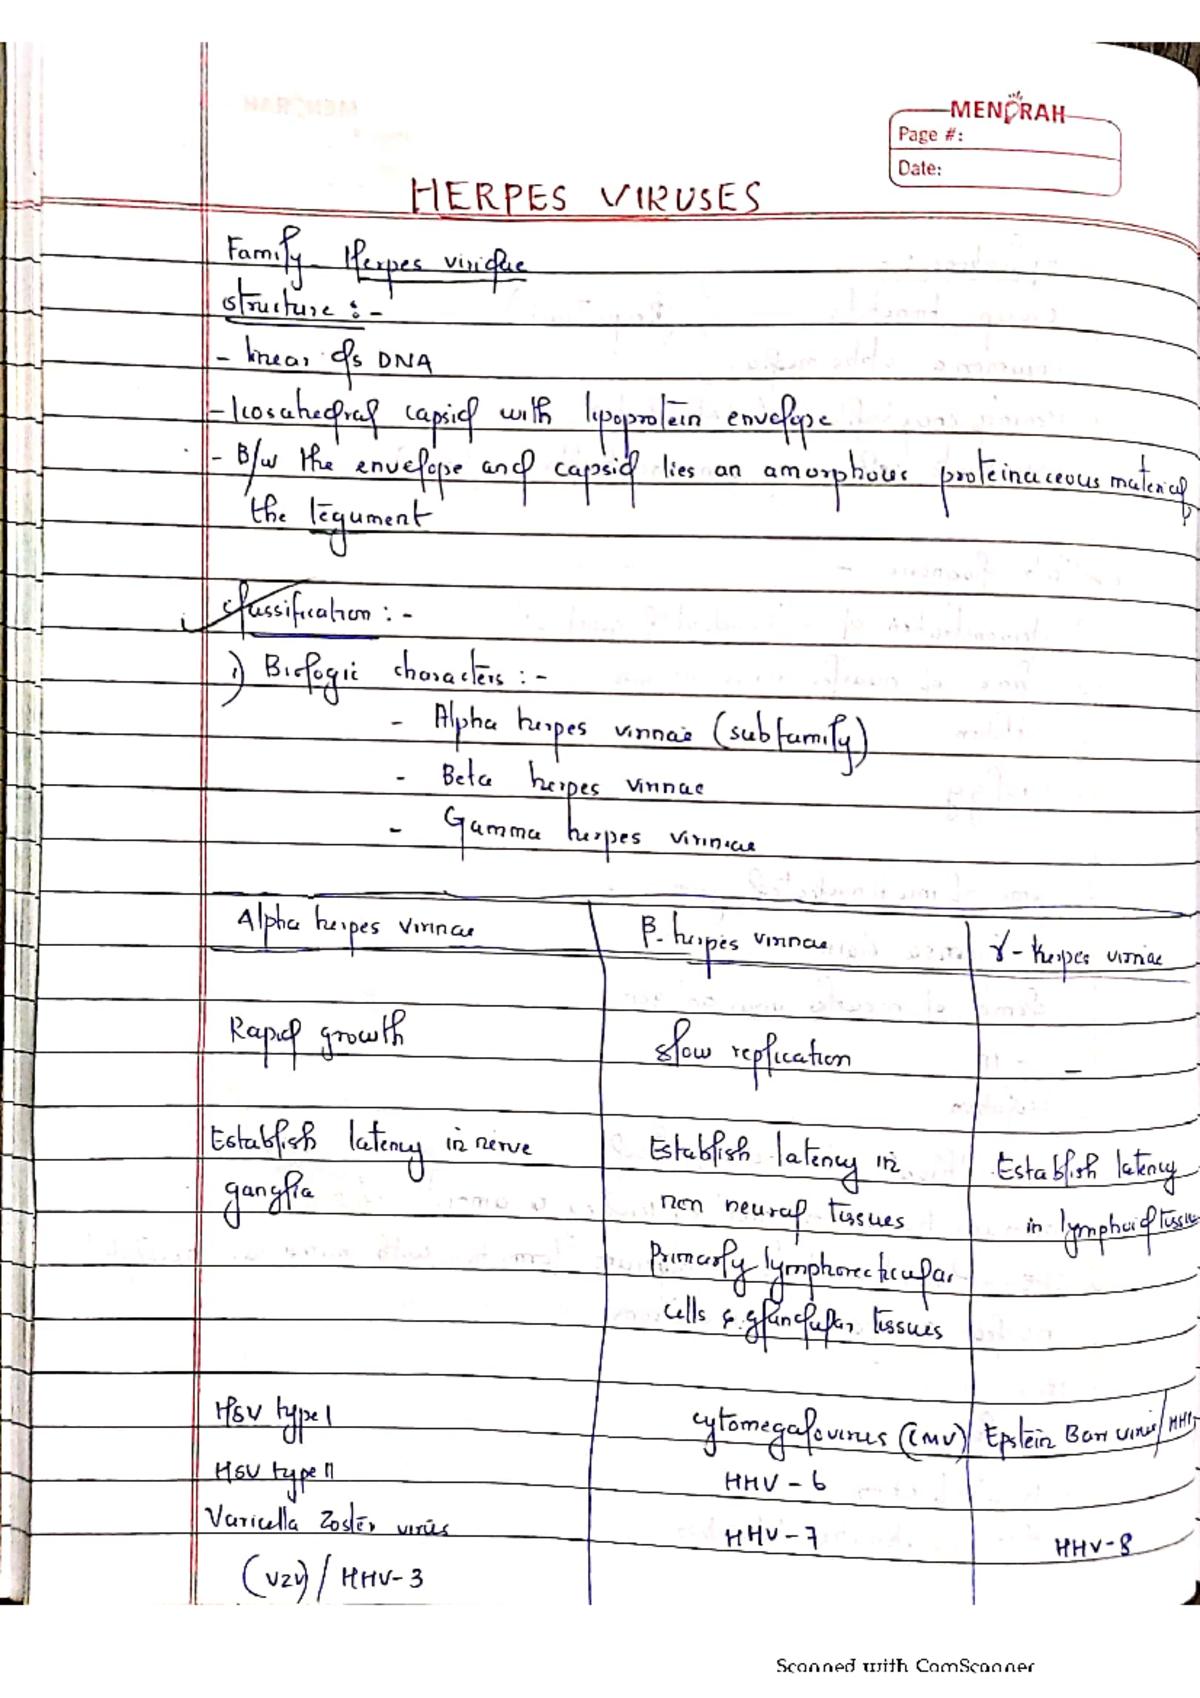 MENORAH
Page #:
Date:
HERPES VIRUSES
Family - Herpes viridae
structure : -
- linear ds DNA
- Icosahedral capsid with lipoprotein envelope
- B/w the envelope and capsid lies an amorphous proteinaceous material
the tegument
classification : -
1) Biologic characters : -
- Alpha herpes virinae (subfamily)
- Beta herpes virinae
- Gamma herpes virinae
Alpha herpes virinae β- herpes virinae γ - herpes virinae
Rapid growth slow replication -
Establish latency in nerve Establish latency in Establish latency
ganglia non neural tissues in lymphoid tissue
Primarly lymphoreticular
cells & glandular tissues
HSV type I cytomegalovirus (CMV) Epstein Barr virus/
HSV type II HHV - 6
Varicella Zoster virus HHV - 7 HHV - 8
(VZV) / HHV- 3
Scanned with CamScanner